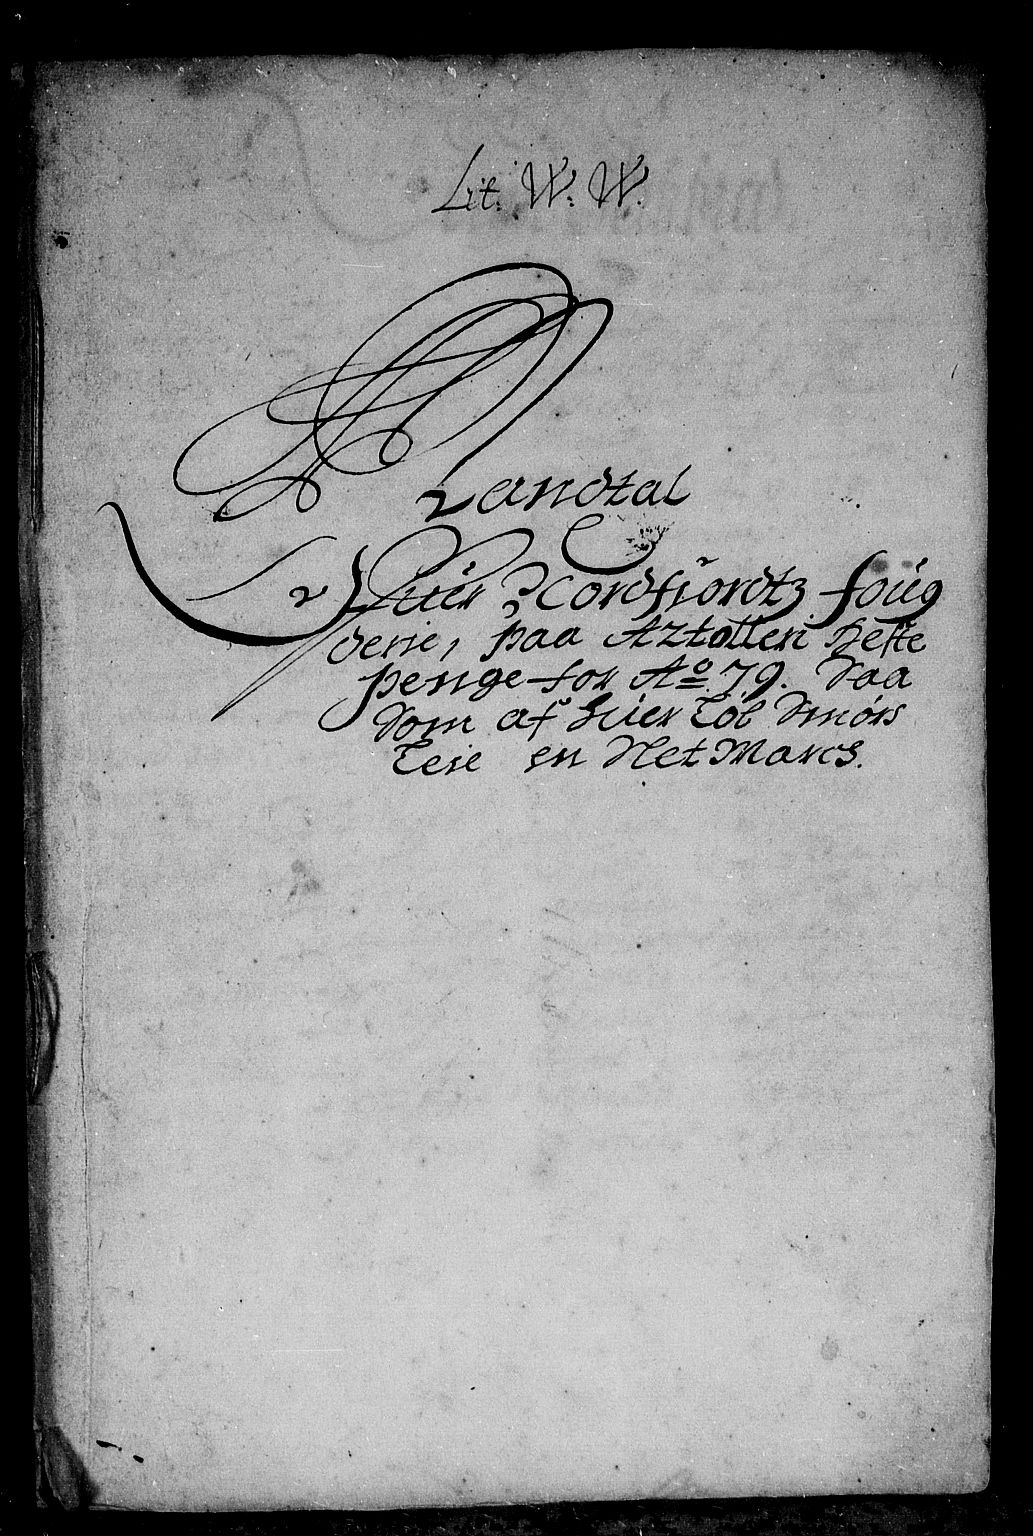 Lit: W: W.
Mandtal
Ofuer Nordfiordtz foug
derie, paa Aztolleri heste
penge for Aº 79. Saa
Som af huer Løb Smørs
Leie en Net Marck.